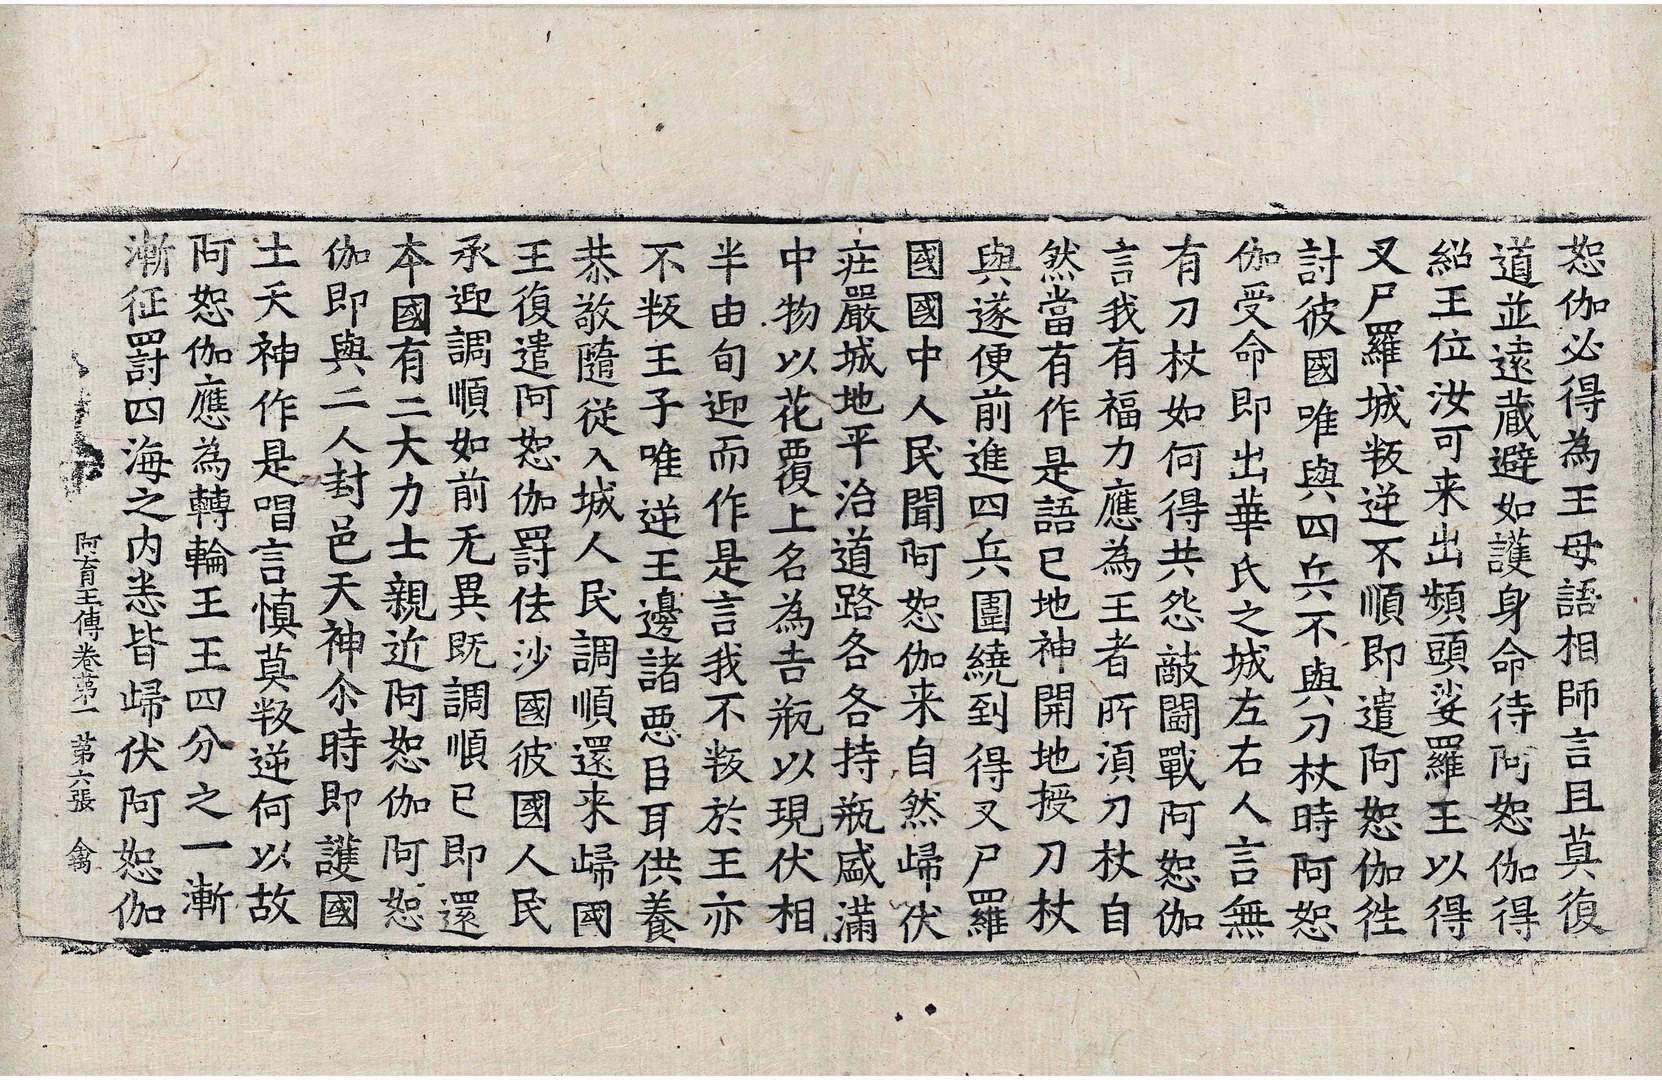 恕伽必得為王母語相師言且莫復
道並遠蔵避如護身命待阿恕伽得
紹王位汝可来出頻頭娑羅王以得
叉尸羅城叛逆不順即遣阿恕伽徃
討彼國唯與四兵不與刀杖時阿恕
伽受命即出華氏之城左右人言無
有刀杖如何得共怨敵鬪戰阿恕伽
言我有福力應為王者所湏刀杖自
然當有作是語已地神開地授刀杖
與遂便前進四兵圍繞到得叉尸羅
國國中人民聞阿恕伽来自然歸伏
莊嚴城地平治道路各各持瓶盛滿
中物以花覆上名為吉瓶以現伏相
半由旬迎而作是言我不叛於王亦
不叛王子唯逆王邊諸惡臣耳供養
恭敬隨從入城人民調順還来歸國
王復遣阿恕伽罸佉沙國彼國人民
承迎調順如前无異既調順已即還
本國有二大力士親近阿恕伽阿恕
伽即與二人封邑天神尒時即護國
土天神作是唱言慎莫叛逆何以故
阿恕伽應為轉輪王王四分之一漸
漸征罸四海之内悉皆歸伏阿恕伽
阿育王傳卷第一 第六張 禽